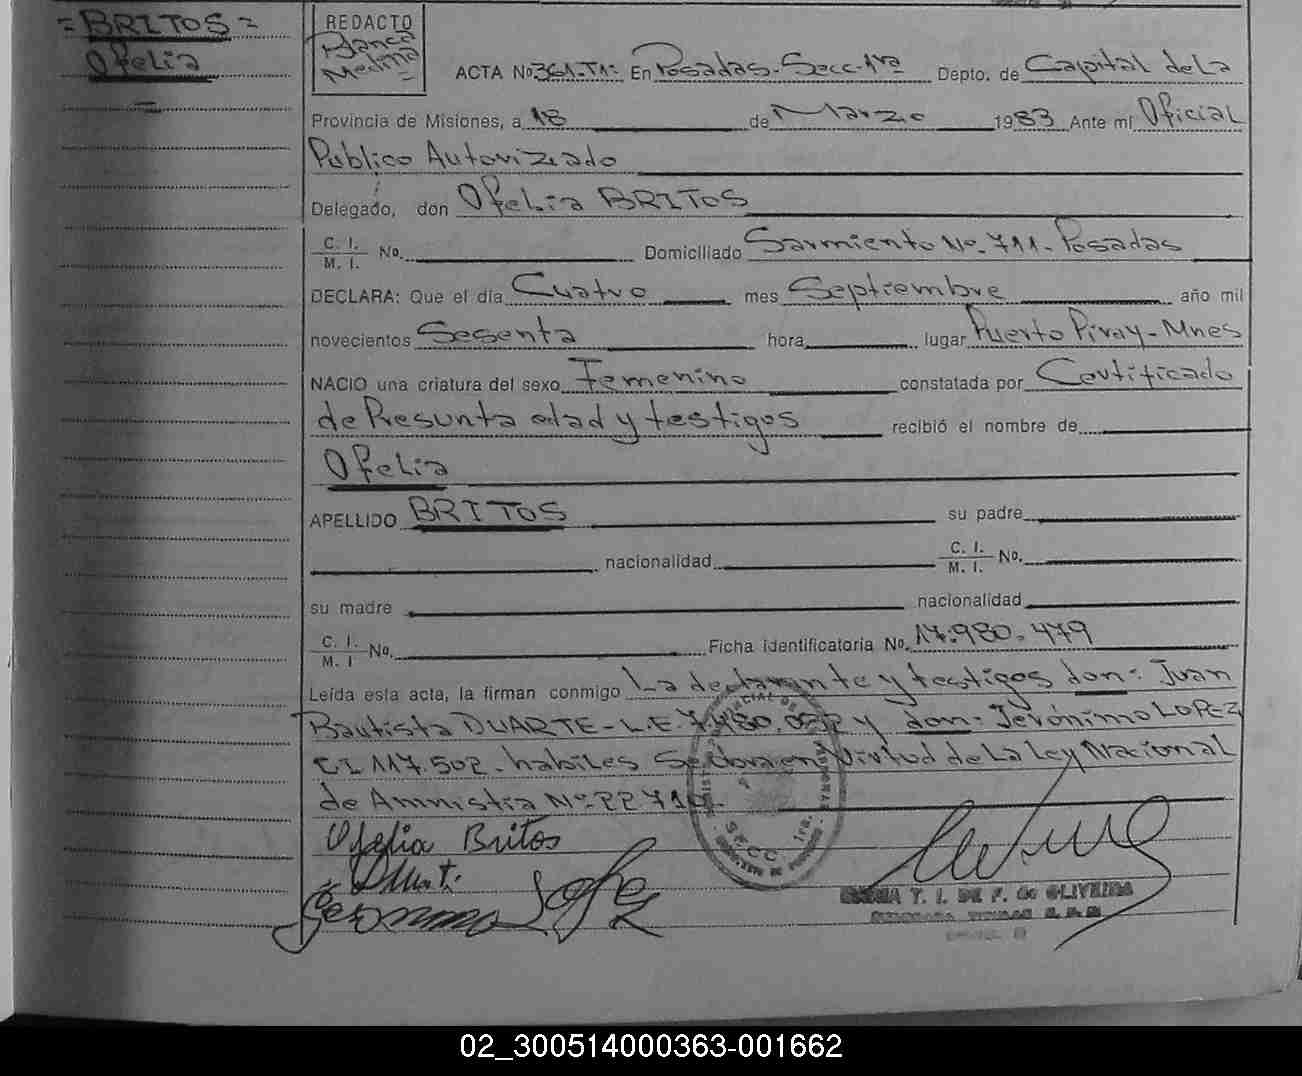 = BRITOS =
Ofelia
REDACTO
Blanca
Medina
ACTA No. 361.T1: En Posadas-Secc-1ra Depto. de Capital de La
Provincia de Misiones, a 18 de Marzo 1983 Ante mí Oficial
Publico Autorizado
Delegado, don Ofelia BRITOS
C. I.
M. I. No. Domiciliado Sarmiento No. 711-Posadas
DECLARA: Que el día Cuatro mes Septiembre año mil
novecientos Sesenta hora lugar Puerto Piray-Mnes
NACIO una criatura del sexo Femenino constatada por Certificado
de Presunta edad y testigos recibió el nombre de
Ofelia
APELLIDO BRITOS su padre
nacionalidad C. I.
M. I. No.
su madre nacionalidad
C. I.
M. I No. Ficha identificatoria No. 17.980.479
Leída esta acta, la firman conmigo La declarante y testigos don: Juan
Bautista DUARTE-L.E. y don: Jerónimo LOPEZ
CI 117.502. habiles en Virtud de La Ley Nacional
de Amnistia No.
Ofelia Britos
Duart.
Geronimo Lopez
SECC. 1ra.
T. I. DE F. de OLIVEIRA
02_300514000363-001662